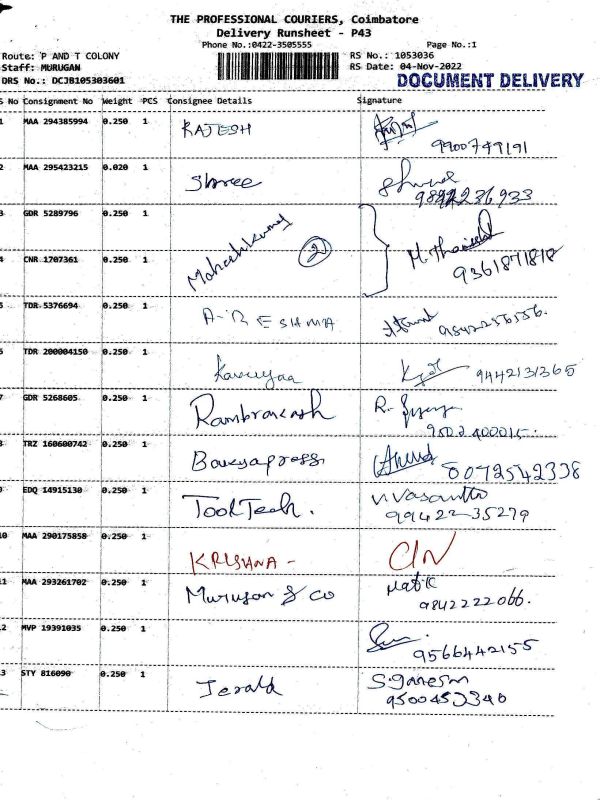 THE PROFESSIONAL COURIERS, Coimbatore
Delivery Runsheet - P43
Phone No.:0422-3505555 Page No.:1
Route: P AND T COLONY RS No.: 1053036
Staff: MURUGAN RS Date: 04-Nov-2022
DRS No.: DCJB105303601 DOCUMENT DELIVERY
S No Consignment No Weight PCS Consignee Details Signature
1 MAA 294385994 0.250 1 RAJESH
9900749191
2 MAA 295423215 0.020 1 Shree
3 GDR 5289796 0.250 1 Maheshkumar 2
4 CNR 1707361 0.250 1 9361871818
5 TDR 5376694 0.250 1 A-RESHMA 9842256556.
6 TDR 200004150 0.250 1
9442131365
7 GDR 5268605 0.250 1 Ramprakash
9502400015.
8 TRZ 160600742 0.250 1 8072542338
9 EDQ 14915130 0.250 1 ToolTech. V.Vasantha
99422-35279
10 MAA 290175858 0.250 1 KRISHNA -
11 MAA 293261702 0.250 1 Murugan & Co
9842222066.
12 MVP 19391035 0.250 1
9566442155
13 STY 816090 0.250 1 Jerald S.ganesh
9500453340